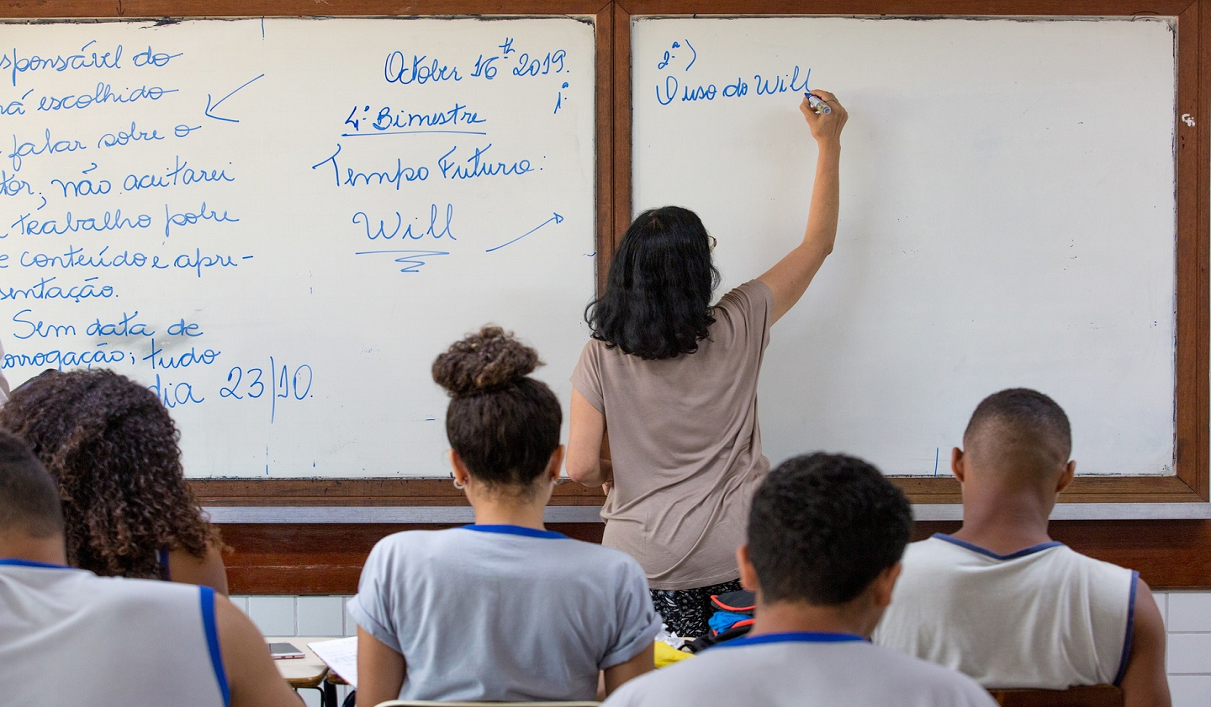 sponsável do
rá escolhido
falar sobre o
tor; não aceitarei
trabalho pobre
e conteúdo e apre-
sentação.
Sem data de
orrogação; tudo
dia 23/10.
October 16th 2019.
1ª
4º Bimestre
Tempo Futuro:
Will
2ª)
O uso do Will